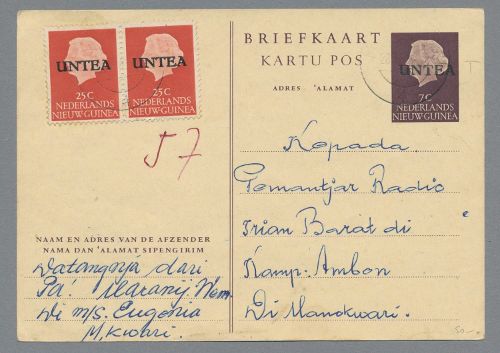 UNTEA
25C
NEDERLANDS
NIEUW-GUINEA
UNTEA
25C
NEDERLANDS
NIEUW-GUINEA
BRIEFKAART
KARTU POS
ADRES 'ALAMAT
UNTEA
7C
NEDERLANDS
NIEUW-GUINEA
57
Kepada
Pemantjar Radio
Irian Barat di
Kamp. Ambon
Di Manokwari.
NAAM EN ADRES VAN DE AFZENDER
NAMA DAN 'ALAMAT SIPENGIRIM
Datangnja dari
Pa!
Di m/s. Eugenia
M, Kwari.
50.-